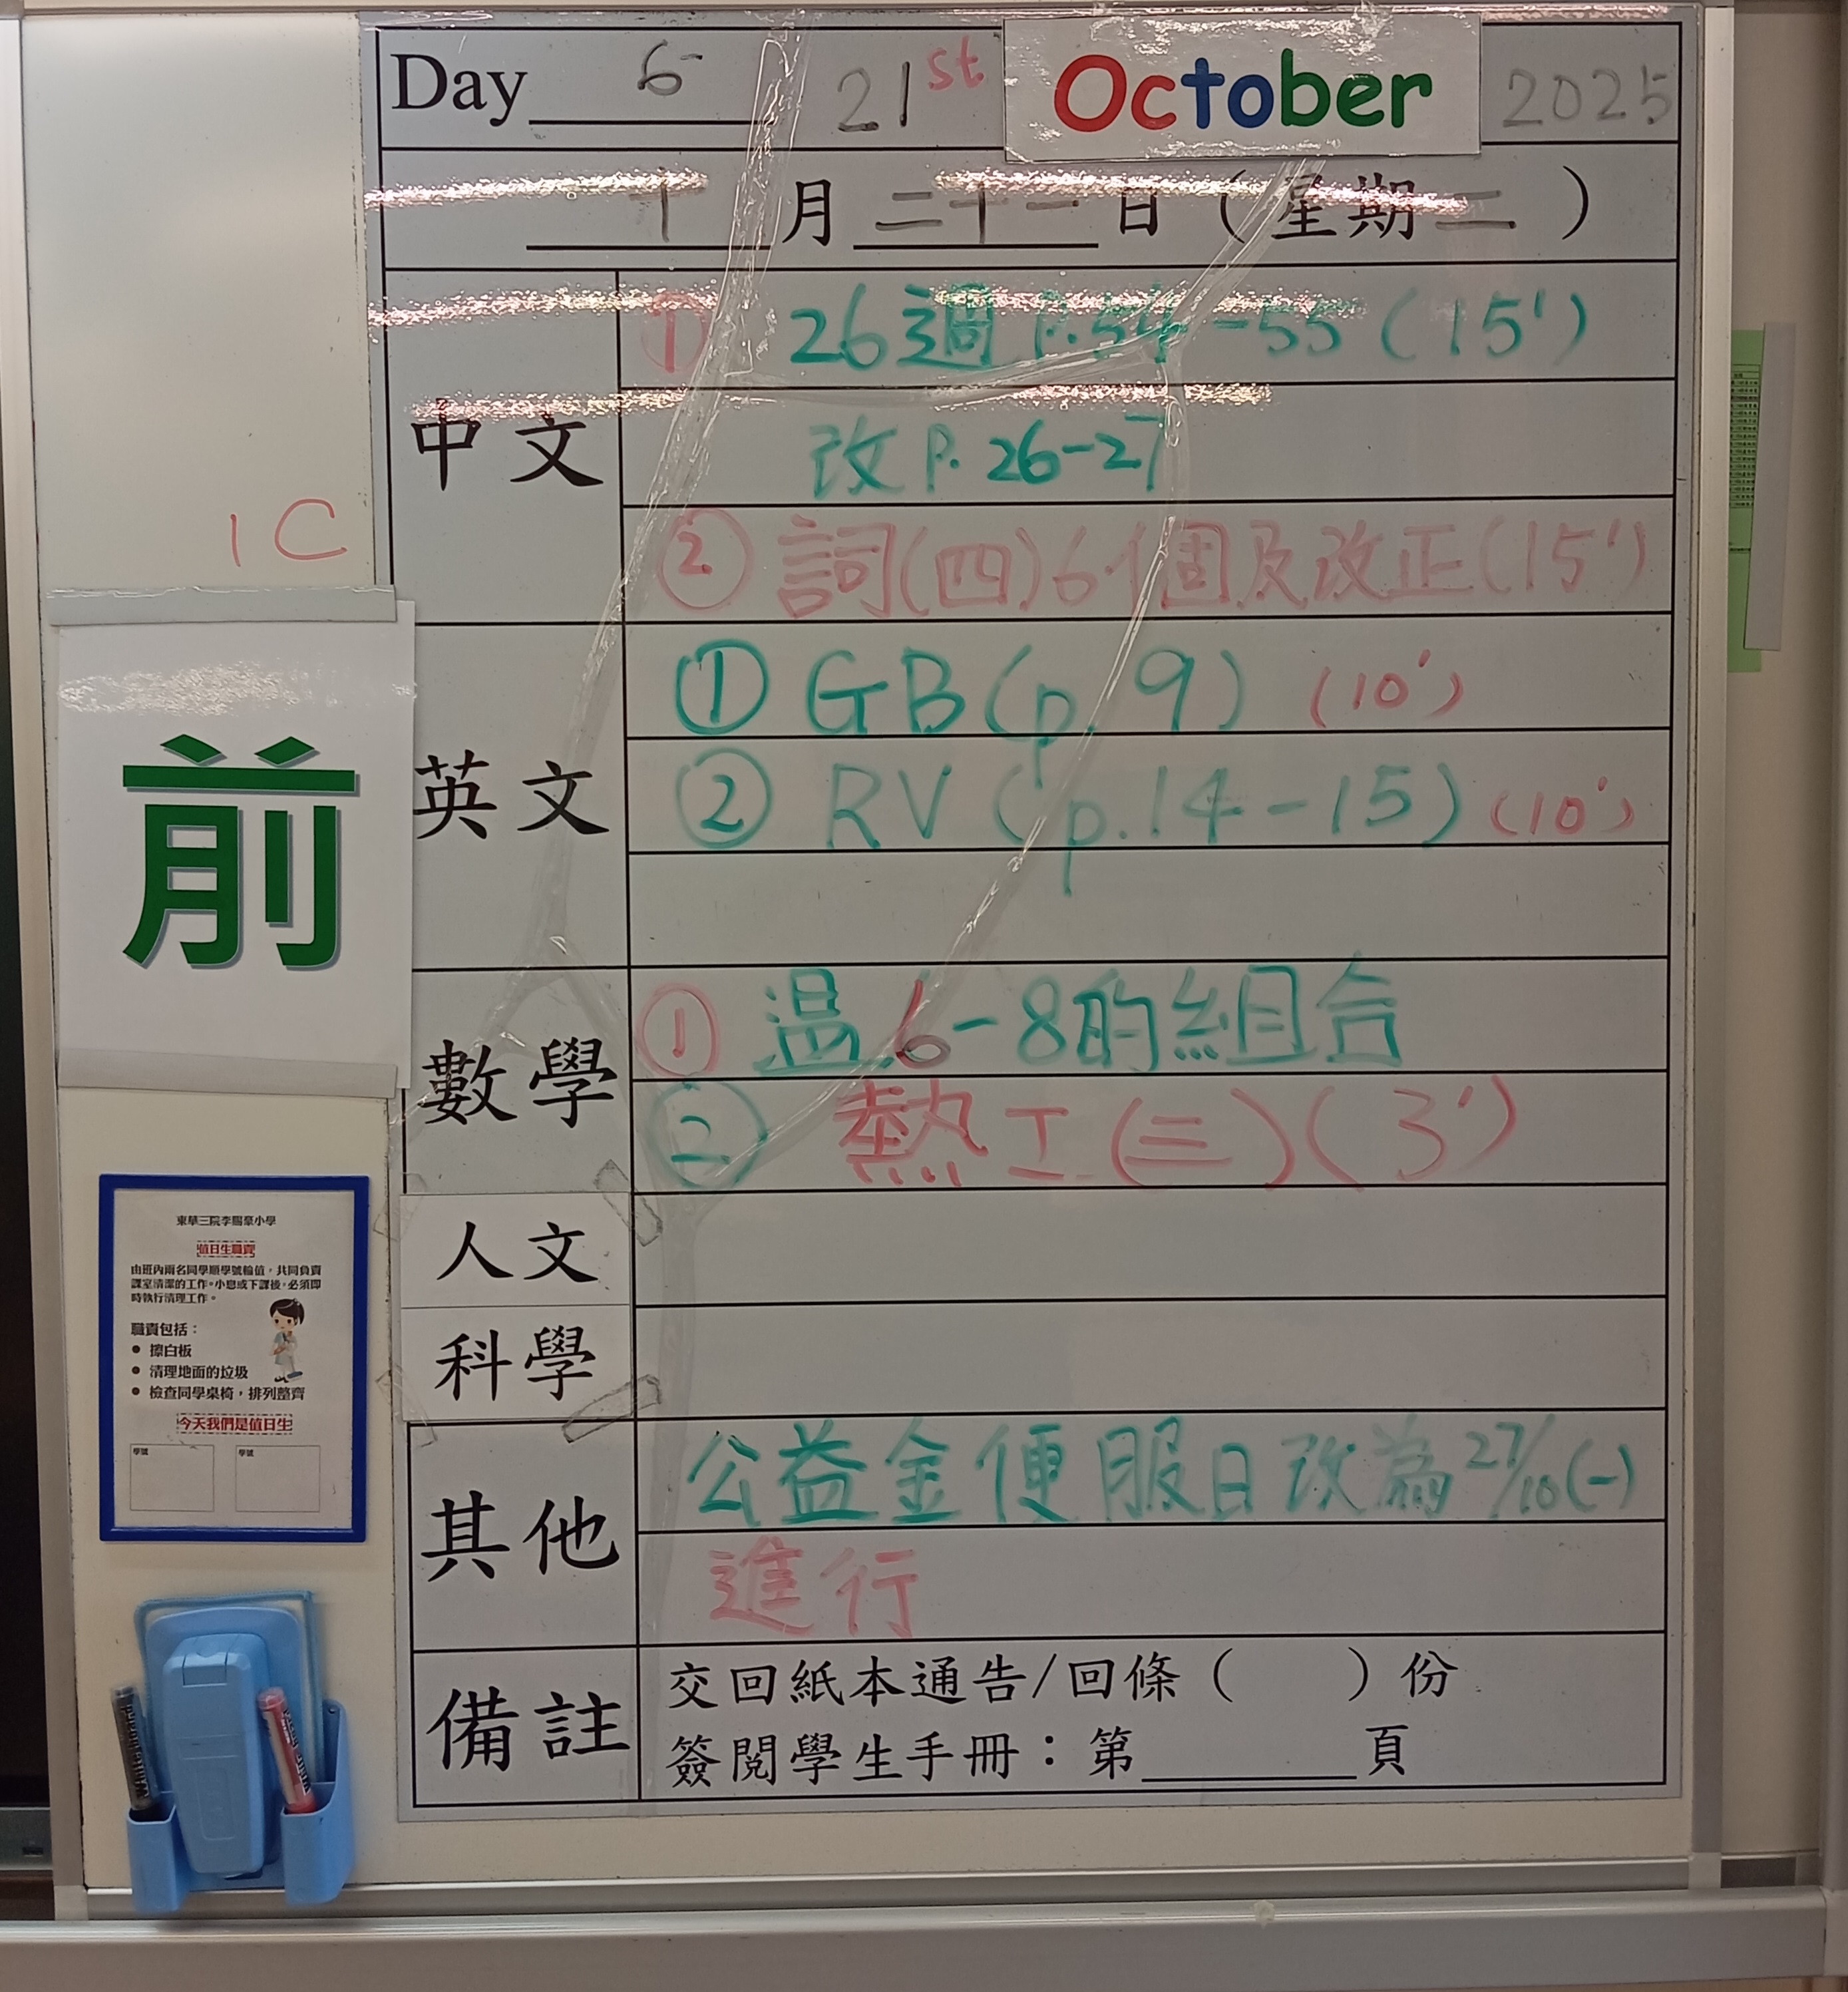 Day 6 21st October 2025
十月二十一日（星期二）
中文
① 26週 P.54-55 (15')
改 P. 26-27
② 詞(四)6個及改正(15')
英文
① GB (p. 9) (10')
② RV (p.14-15) (10')
數學
① 温 6-8的組合
② 熱工(三)(3')
人文
科學
其他
公益金便服日改為27/10(一)
進行
備註
交回紙本通告/回條（　　）份
簽閱學生手冊：第______頁
1C
前
東華三院李賜豪小學
值日生職責
由班內兩名同學順學號輪值，共同負責
課室清潔的工作。小息或下課後，必須即
時執行清理工作。
職責包括：
● 擦白板
● 清理地面的垃圾
● 檢查同學桌椅，排列整齊
今天我們是值日生
學號 學號